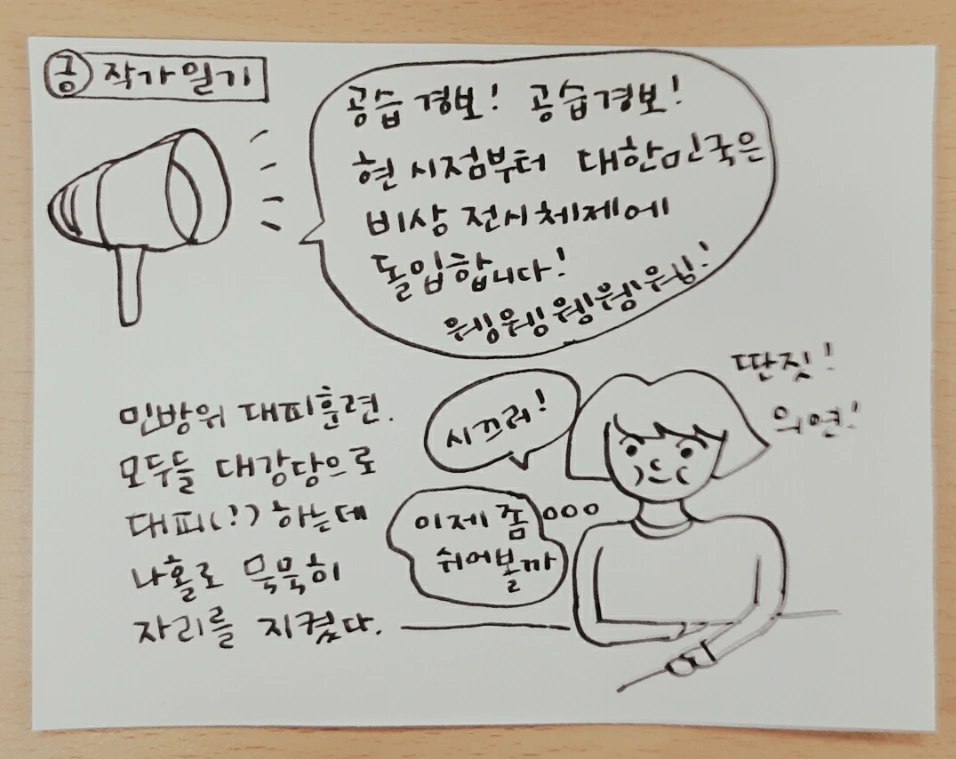 공 작가일기
공습경보! 공습경보!
현 시점부터 대한민국은
비상 전시체제에
돌입합니다!
웽웽웽웽웽!
딴짓!
의연!
시끄러!
민방위 대피훈련.
모두들 대강당으로
대피(!?) 하는데
나홀로 묵묵히
자리를 지켰다.
이제 좀
쉬어볼까